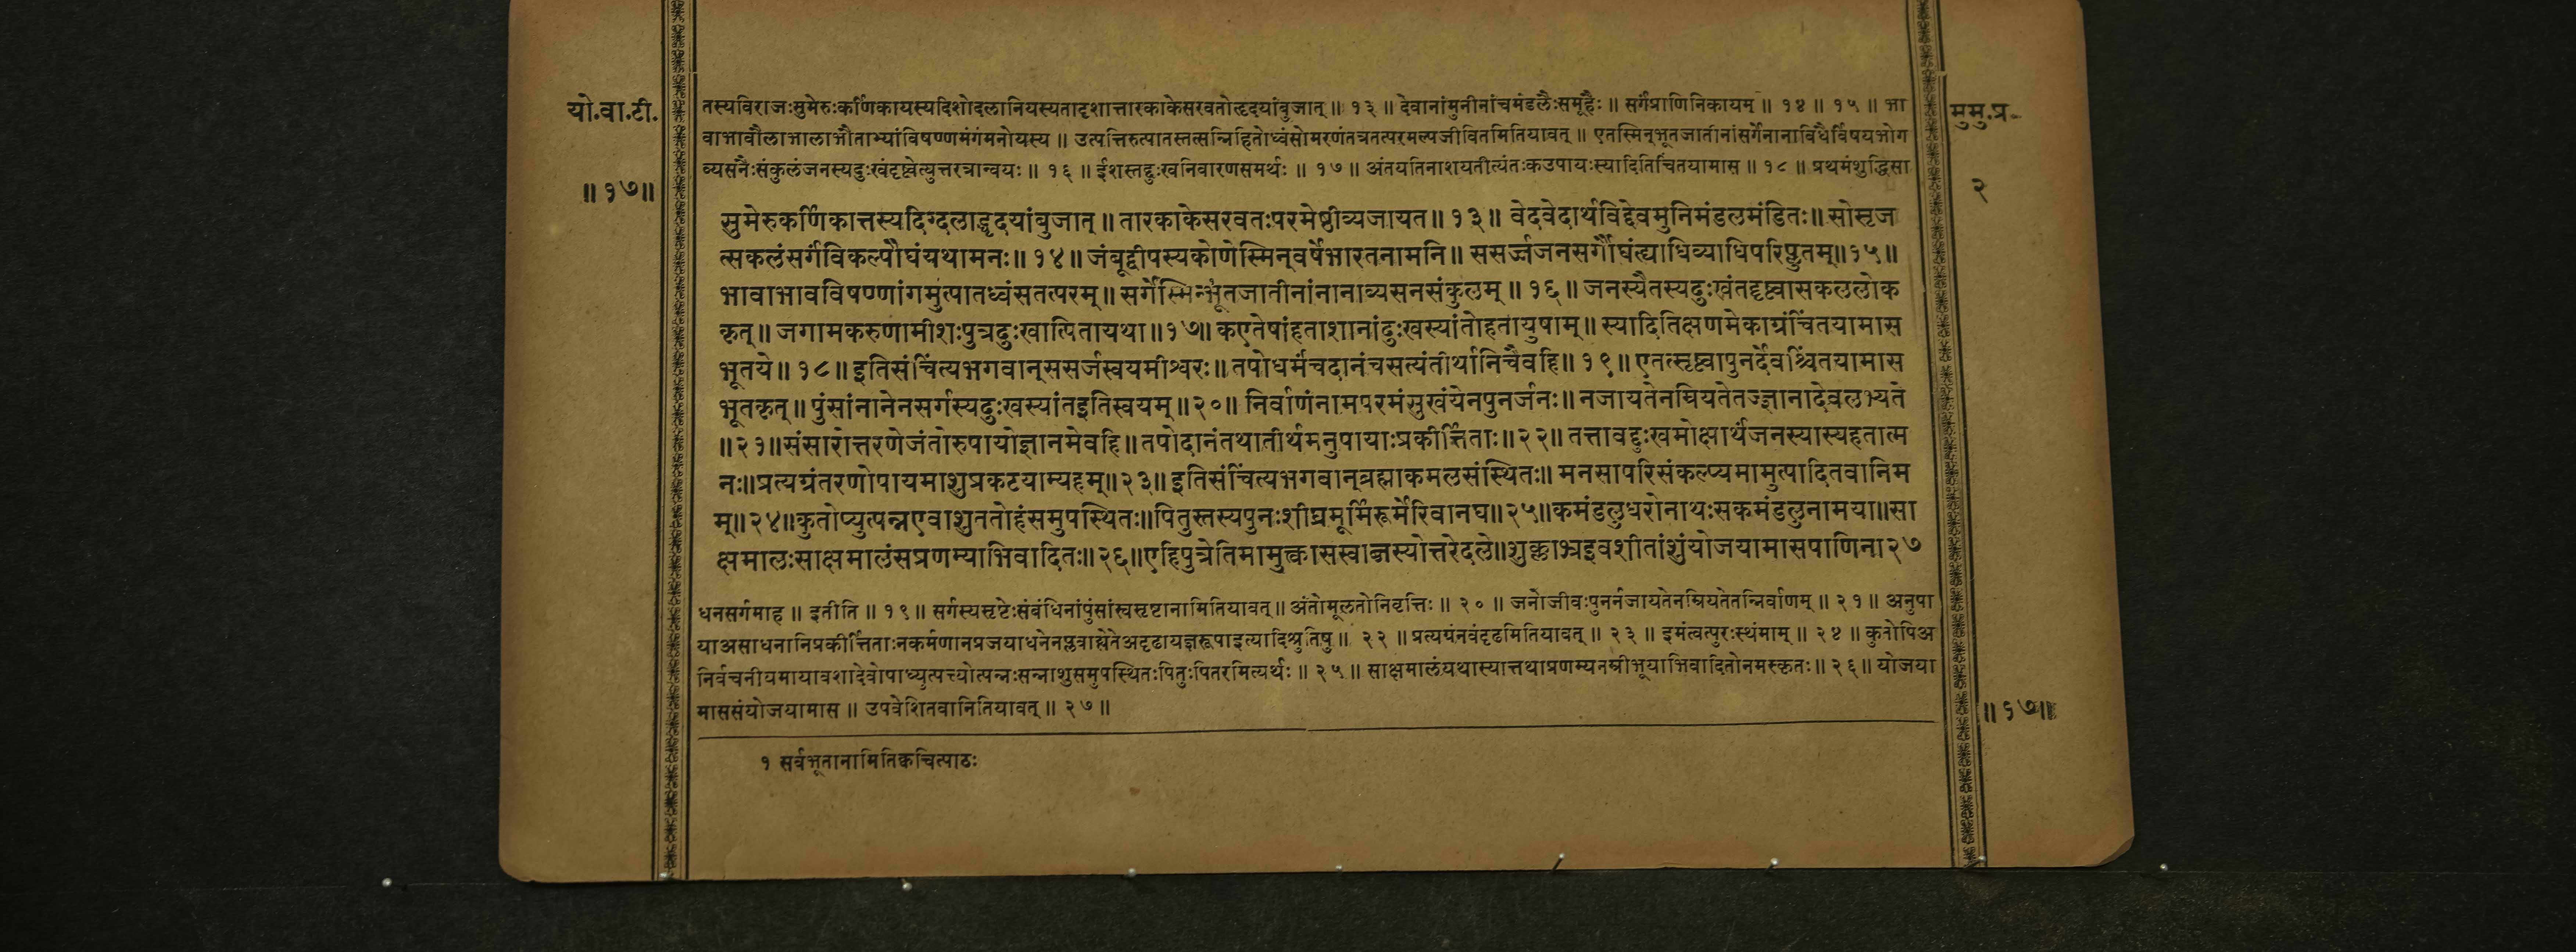 यो.वा.टी.
॥१७॥
मुमु.प्र.
२
तस्यविराजःसुमेरुःकर्णिकायस्यदिशोदलानियस्यतादृशात्तारकाकेसरवतोहृदयांबुजात् ॥ १३ ॥ देवानांमुनीनांचमंडलैःसमूहैः ॥ सर्गंप्राणिनिकायम् ॥ १४ ॥ १५ ॥ भा
वाभावौलाभालाभौताभ्यांविषण्णमंगंमनोयस्य ॥ उत्पत्तिरुत्पातस्तत्सन्निहितोध्वंसोमरणंतत्रतत्परमल्पजीवितमितियावत् ॥ एतस्मिन्भूतजातीनांसर्गेनानाविधैर्विषयभोग
व्यसनैःसंकुलंजनस्यदुःखंदृष्ट्वेत्युत्तरत्रान्वयः ॥ १६ ॥ ईशस्तद्दुःखनिवारणसमर्थः ॥ १७ ॥ अंतयतिनाशयतीत्यंतःकउपायःस्यादितिचिंतयामास ॥ १८ ॥ प्रथमंशुद्धिसा
सुमेरुकर्णिकात्तस्यदिग्दलाद्धृदयांबुजात् ॥ तारकाकेसरवतःपरमेष्ठीव्यजायत ॥ १३ ॥ वेदवेदार्थविद्देवमुनिमंडलमंडितः ॥ सोसृज
त्सकलंसर्गंविकल्पौघंयथामनः ॥ १४ ॥ जंबूद्वीपस्यकोणेस्मिन्वर्षेभारतनामनि ॥ ससर्ज्जजनसर्गौघंत्द्याधिव्याधिपरिप्लुतम्॥१५॥
भावाभावविषण्णांगमुत्पातध्वंसतत्परम् ॥ सर्गेस्मिन्भूतजातीनांनानाव्यसनसंकुलम् ॥ १६ ॥ जनस्यैतस्यदुःखंतद्दृष्ट्वासकललोक
कृत् ॥ जगामकरुणामीशःपुत्रदुःखात्पितायथा ॥१७॥ कएतेषांहताशानांदुःखस्यांतोहतायुषाम् ॥ स्यादितिक्षणमेकाग्रंचिंतयामास
भूतये ॥ १८ ॥ इतिसंचिंत्यभगवान्ससर्जस्वयमीश्वरः ॥ तपोधर्मंचदानंचसत्यंतीर्थानिचैवहि ॥ १९ ॥ एतत्सृष्ट्वापुनर्देवश्चिंतयामास
भूतकृत् ॥ पुंसांनानेनसर्गस्यदुःखस्यांतइतिस्वयम् ॥२०॥ निर्वाणंनामपरमंसुखंयेनपुनर्जनः ॥ नजायतेनम्रियतेतज्ज्ञानादेवलभ्यते
॥२१॥ संसारोत्तरणेजंतोरुपायोज्ञानमेवहि ॥ तपोदानंतथातीर्थमनुपायाःप्रकीर्त्तिताः ॥२२॥ तत्तावद्दुःखमोक्षार्थंजनस्यास्यहतात्म
नः॥प्रत्यग्रंतरणोपायमाशुप्रकटयाम्यहम्॥२३॥ इतिसंचिंत्यभगवान्ब्रह्माकमलसंस्थितः॥ मनसापरिसंकल्प्यमामुत्पादितवानिम
म्॥२४॥कुतोप्युत्पन्नएवाशुततोहंसमुपस्थितः॥पितुस्तस्यपुनःशीघ्रमूर्मिरूर्मेरिवानघ॥२५॥कमंडलुधरोनाथःसकमंडलुनामया॥सा
क्षमालःसाक्षमालंसप्रणम्याभिवादितः॥२६॥एहिपुत्रेतिमामुत्त्कासस्वाब्जस्योत्तरेदले॥शुक्लाभ्रइवशीतांशुंयोजयामासपाणिना२७
धनसर्गमाह ॥ इतीति ॥ १९ ॥ सर्गस्यसृष्टेःसंबंधिनांपुंसांस्वसृष्टानामितियावत् ॥ अंतोमूलतोनिवृत्तिः ॥ २० ॥ जनोजीवःपुनर्नजायतेनम्रियतेतन्निर्वाणम् ॥ २१ ॥ अनुपा
याअसाधनानिप्रकीर्त्तिताःनकर्मणानप्रजयाधनेनप्लवाह्येतेअदृढायज्ञरूपाइत्यादिश्रुतिषु ॥ २२ ॥ प्रत्यग्रंनवंदृढमितियावत् ॥ २३ ॥ इमंत्वत्पुरःस्थंमाम् ॥ २४ ॥ कुतोपिअ
निर्वचनीयमायावशादेवोपाध्युत्पत्त्योत्पन्नःसन्नाशुसमुपस्थितःपितुःपितरमित्यर्थः ॥ २५ ॥ साक्षमालंयथास्यात्तथाप्रणम्यनम्रीभूयाभिवादितोनमस्कृतः ॥ २६ ॥ योजया
माससंयोजयामास ॥ उपवेशितवानितियावत् ॥ २७ ॥
॥१७॥
१ सर्वभूतानामितिक्वचित्पाठः